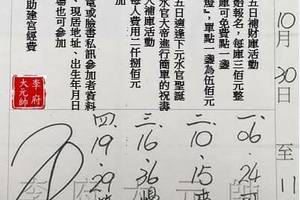 10月30日 至 11
五日補財庫活動
始報名，每庫三佰元整
庫可免費點一盞
燈，單點一盞為伍佰元
五日適逢下元水官聖誕
水官大帝進行簡單的祝壽
人補庫活動
每人費用二仟捌佰元
電或臉書私訊參加者資料
、現居地址、出生年月日
場也可參加
助建宮經費
李府
大元帥
一.06.24
二.10.15
三.16.36
四.19.29